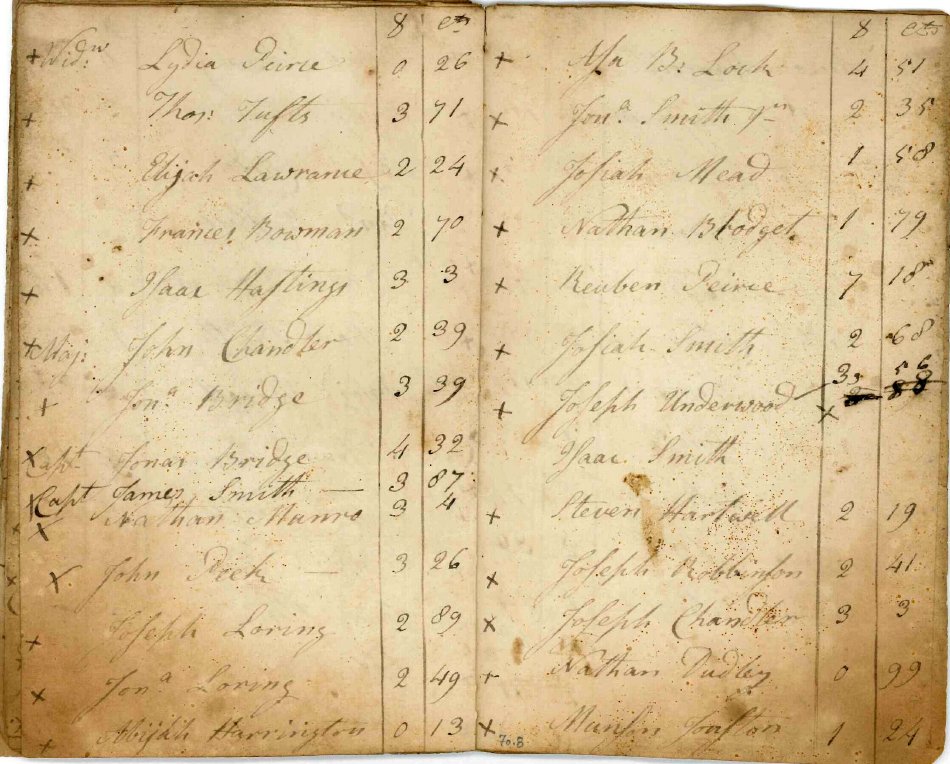 8 cts
+ Widw: Lydia Peirce 0 26
+ Thos: Tufts 3 71
+ Elijah Lawrance 2 24
+ Frances Bowman 2 70
+ Isaac Hastings 3 3
+ Maj: John Chandler 2 39
+ Jona Bridge 3 39
x Capt Jonas Bridge 4 32
x Capt James Smith — 3 87
x Nathan Munro 3 4
x John Peck — 3 26
+ Joseph Loring 2 89
x Jona Loring 2 49
+ Abijah Harrington 0 13
8 cts
+ Asa B: Lock 4 51
x Jona Smith Jun 2 35
+ Josiah Mead 1 58
+ Nathan Blodget 1 79
+ Reuben Peirce 7 18
+ Josiah Smith 2 68
33 56
+ Joseph Underwood x 88
Isaac Smith
+ Steven Hartwell 2 19
x Joseph Robbinson 2 41
x Joseph Chandler 3 3
+ Nathan Dudley 0 99
x 1 24
70.B